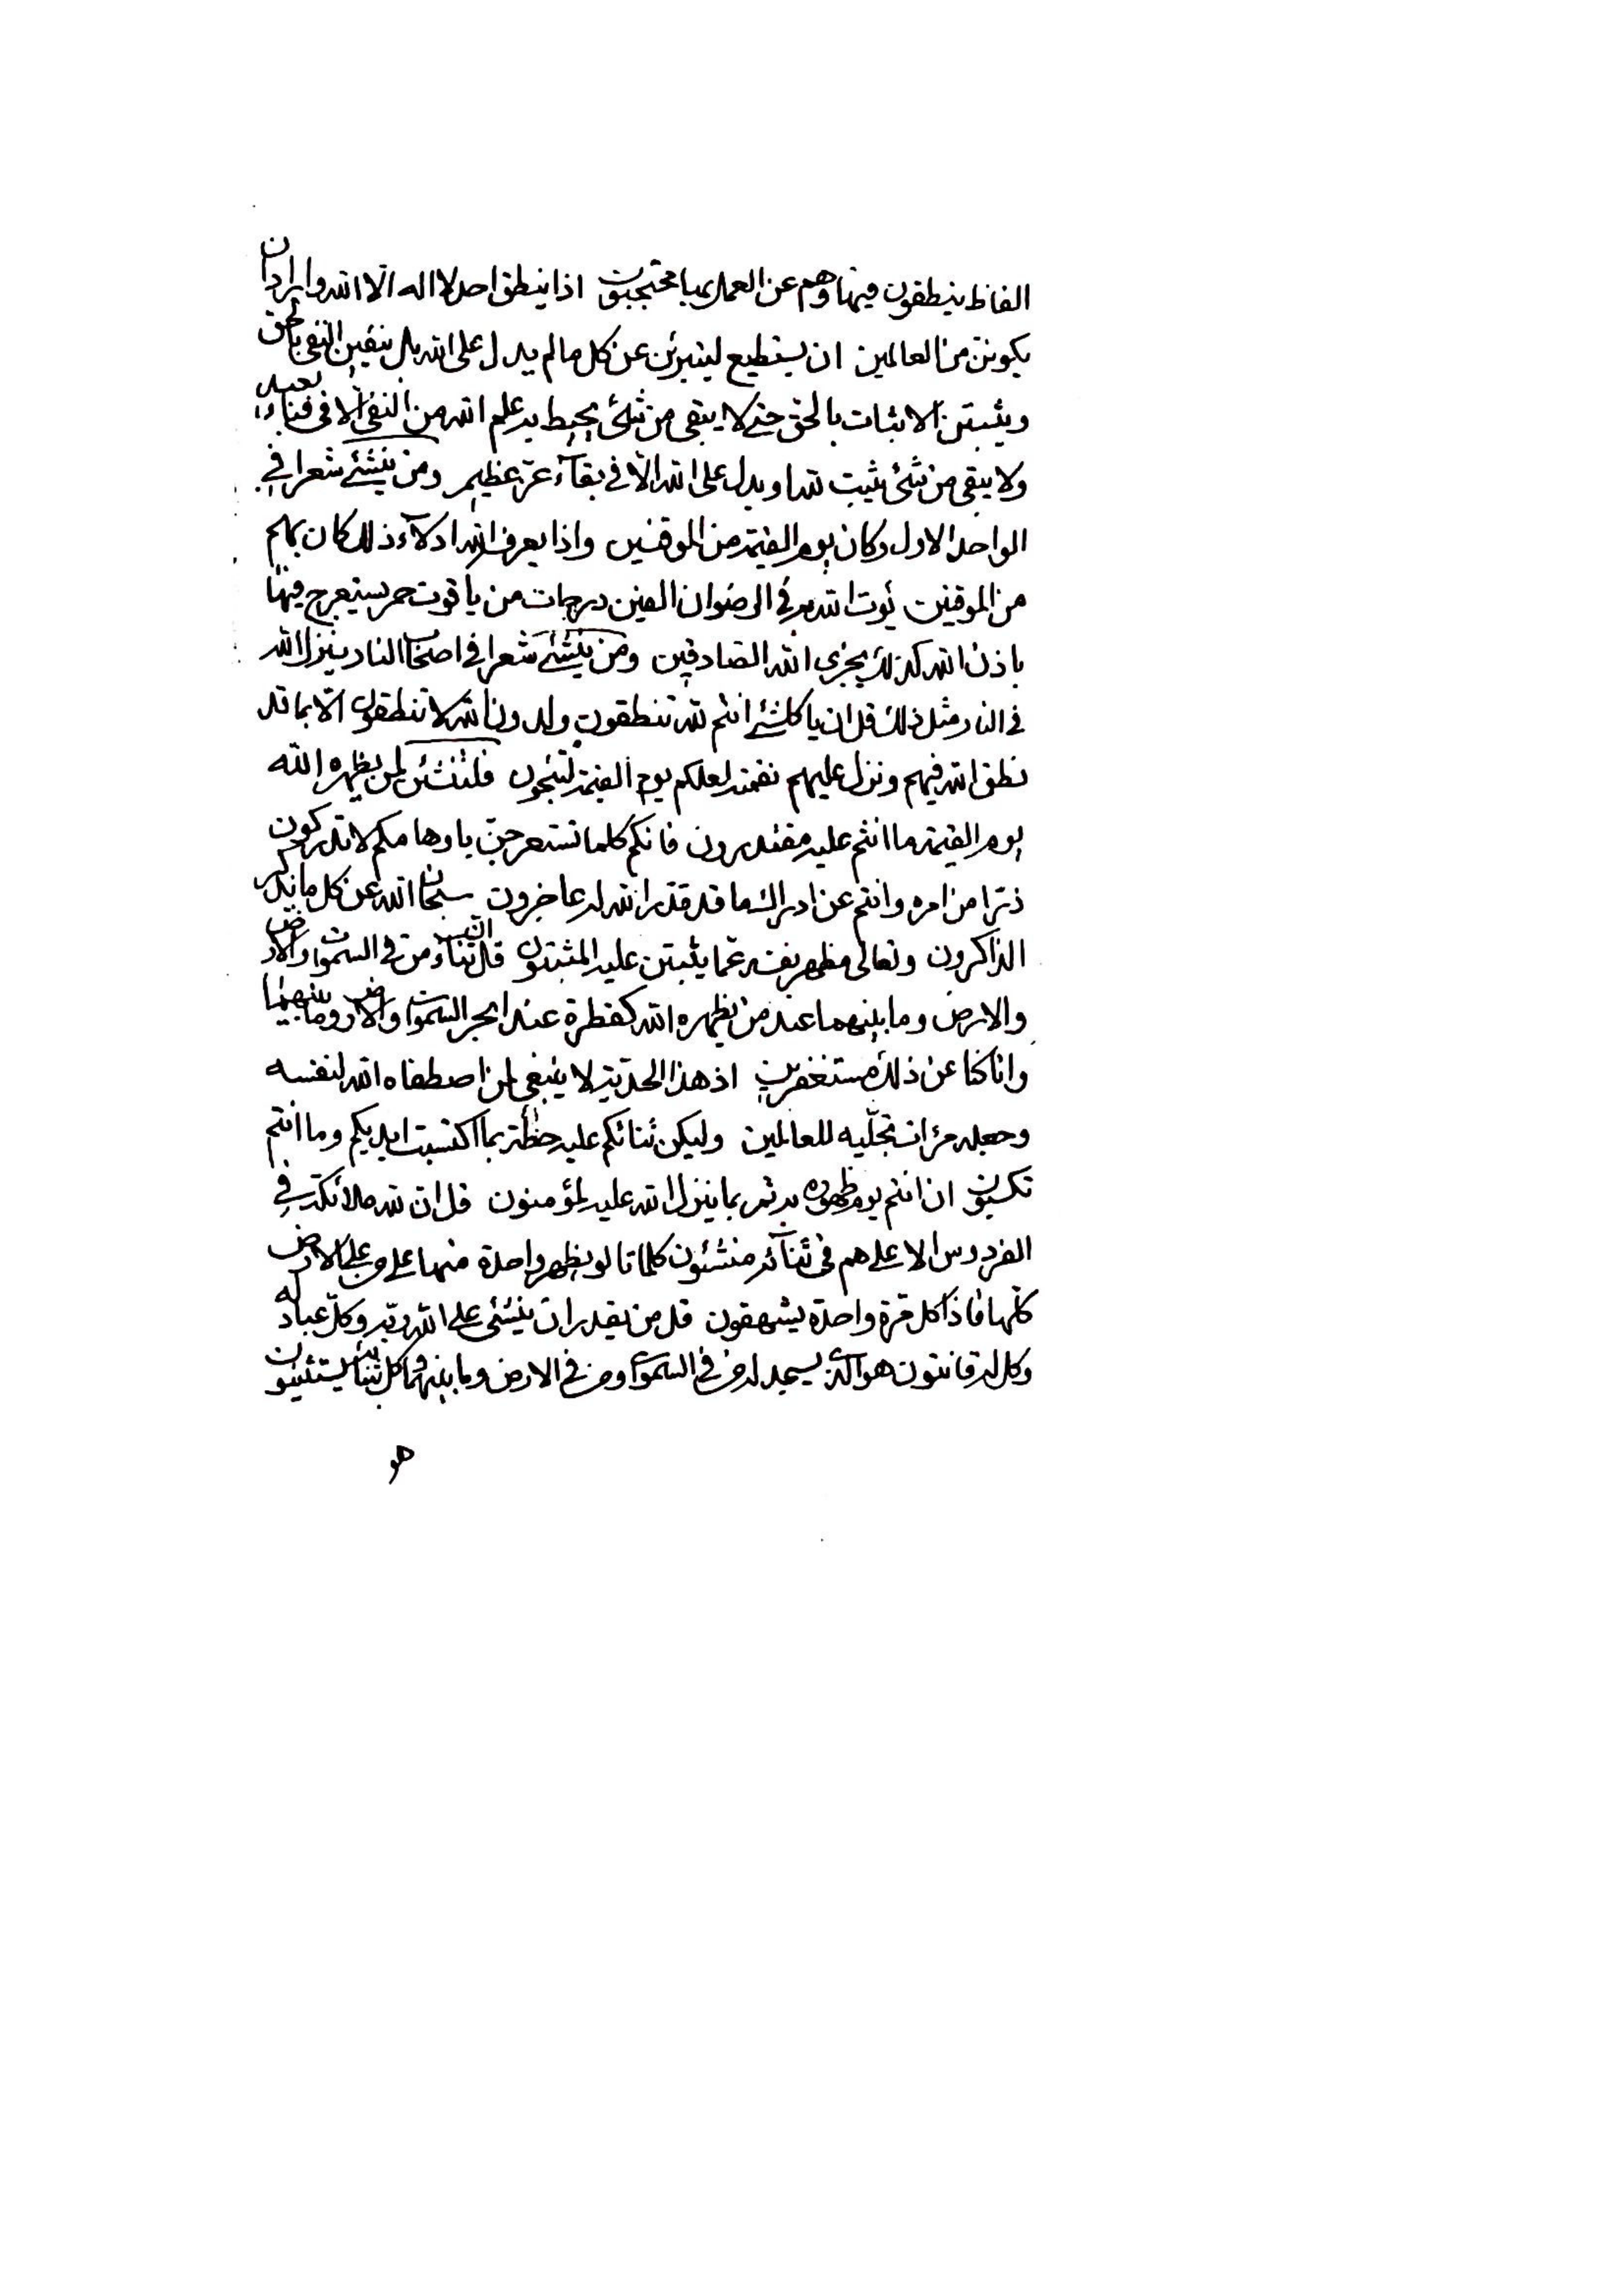 الفاظ ينطقون فيها وهم عن العمل بها محتجبون اذا ينطق احد لا اله الا الله واراد ان
يكونن من العالمين ان يستطيع ليتبرئن عن كل ما لم يدل على الله بل ينفين النفي بالحق
ويثبتن الاثبات بالحق حتى لا يبقى من شئ يحيط به علم الله من النفي الا في فناء بعيد
ولا يبقى من شئ يثبت لله او يدل على الله الا في بقآء عز عظيم ومن ينشئ شعرا في
الواحد الاول وكان يوم القيمة من الموقنين واذا يعرف الله ادلآء ذلك كان بهم
من الموقنين يؤت الله به في الرضوان الفين درجات من ياقوت حمر يستعرج فيها
باذن الله كذلك يجزى الله الصادقين ومن ينشئ شعرا في اصحاب النار ينزل الله
في النار مثل ذلك قل ان يا كلشئ انتم لله تنطقون ولدون الله لا تنطقون الا بما قد
نطق الله فيهم ونزل عليهم نقمته لعلكم يوم القيمة لتنجون فلتنشئن لمن يظهره الله
يوم القيمة ما انتم عليه مقتدرون فانكم كلما تستعرجن باوهامكم لا تدركون
ذرا من امره وانتم عن ادراك ما قد قدر الله له عاجزون سبحان الله عن كل ما يذكر
الذاكرون وتعالى مظهر نفسه عما يثبتن عليه المثبتون قل ان ثناء من في السموات والارض
والارض وما بينهما عند من يظهره الله كقطرة عند ابحر السموات والارض وما بينهما
وانا كنا عن ذلك مستغفرين اذ هذا الحدية لا ينبغي لمن اصطفاه الله لنفسه
وجعله مرءات تجليه للعالمين وليكن ثنائكم عليه حظكم بما اكتسبت ايديكم وما انتم
تكسبون ان انتم يوم ظهوره به ثم بما ينزل الله عليه لمؤمنون قل ان لله ملائكة في
الفردوس الاعلى هم في ثنآئه منشئون كلماتا لو يظهر واحدة منها على من على الارض
كلها فاذا كل مرة واحدة يشهقون قل من يقدر ان ينشئ على الله ربه وكل عباد له
وكل له قانتون هو الذي يسجد له من في السموات ومن في الارض وما بينهما وكل بثنائه ليستثنون
هو